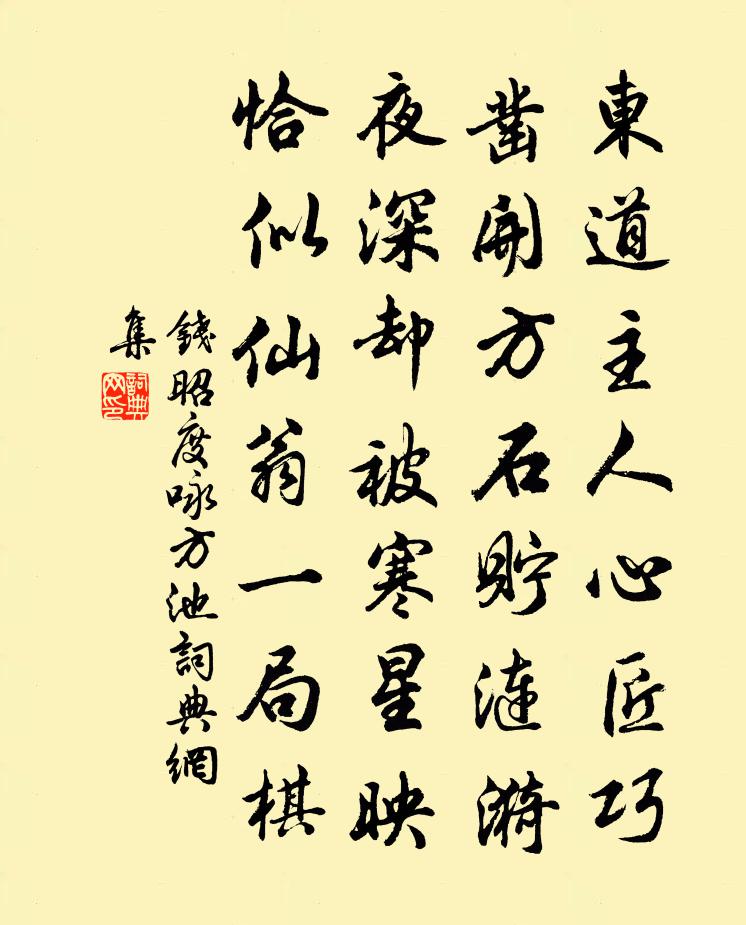 東道主人心匠巧
凿開方石貯漣漪
夜深却被寒星映
恰似仙翁一局棋
錢昭度咏方池詞典網
集
詞典
网印